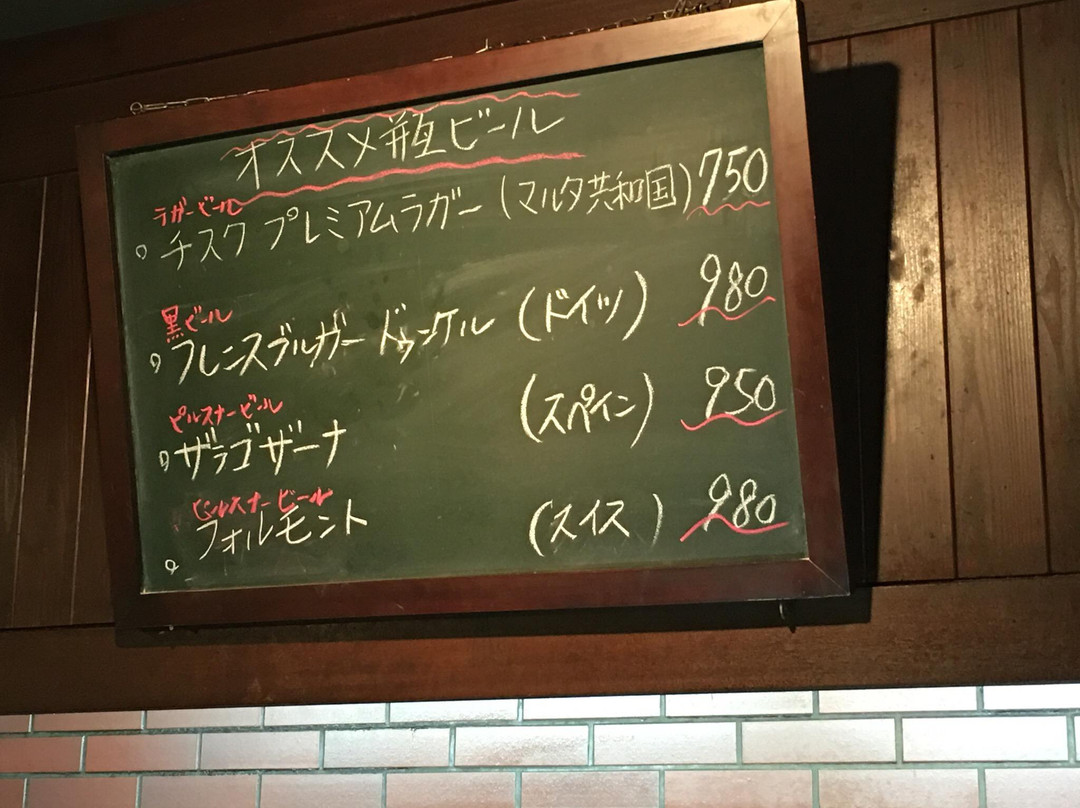 オススメ瓶ビール
ラガービール
チスク プレミアムラガー (マルタ共和国) 750
黒ビール
フレンスブルガー ドゥンケル (ドイツ) 980
ピルスナービール
ザラゴザーナ (スペイン) 950
ピルスナービール
フォルモント (スイス) 980